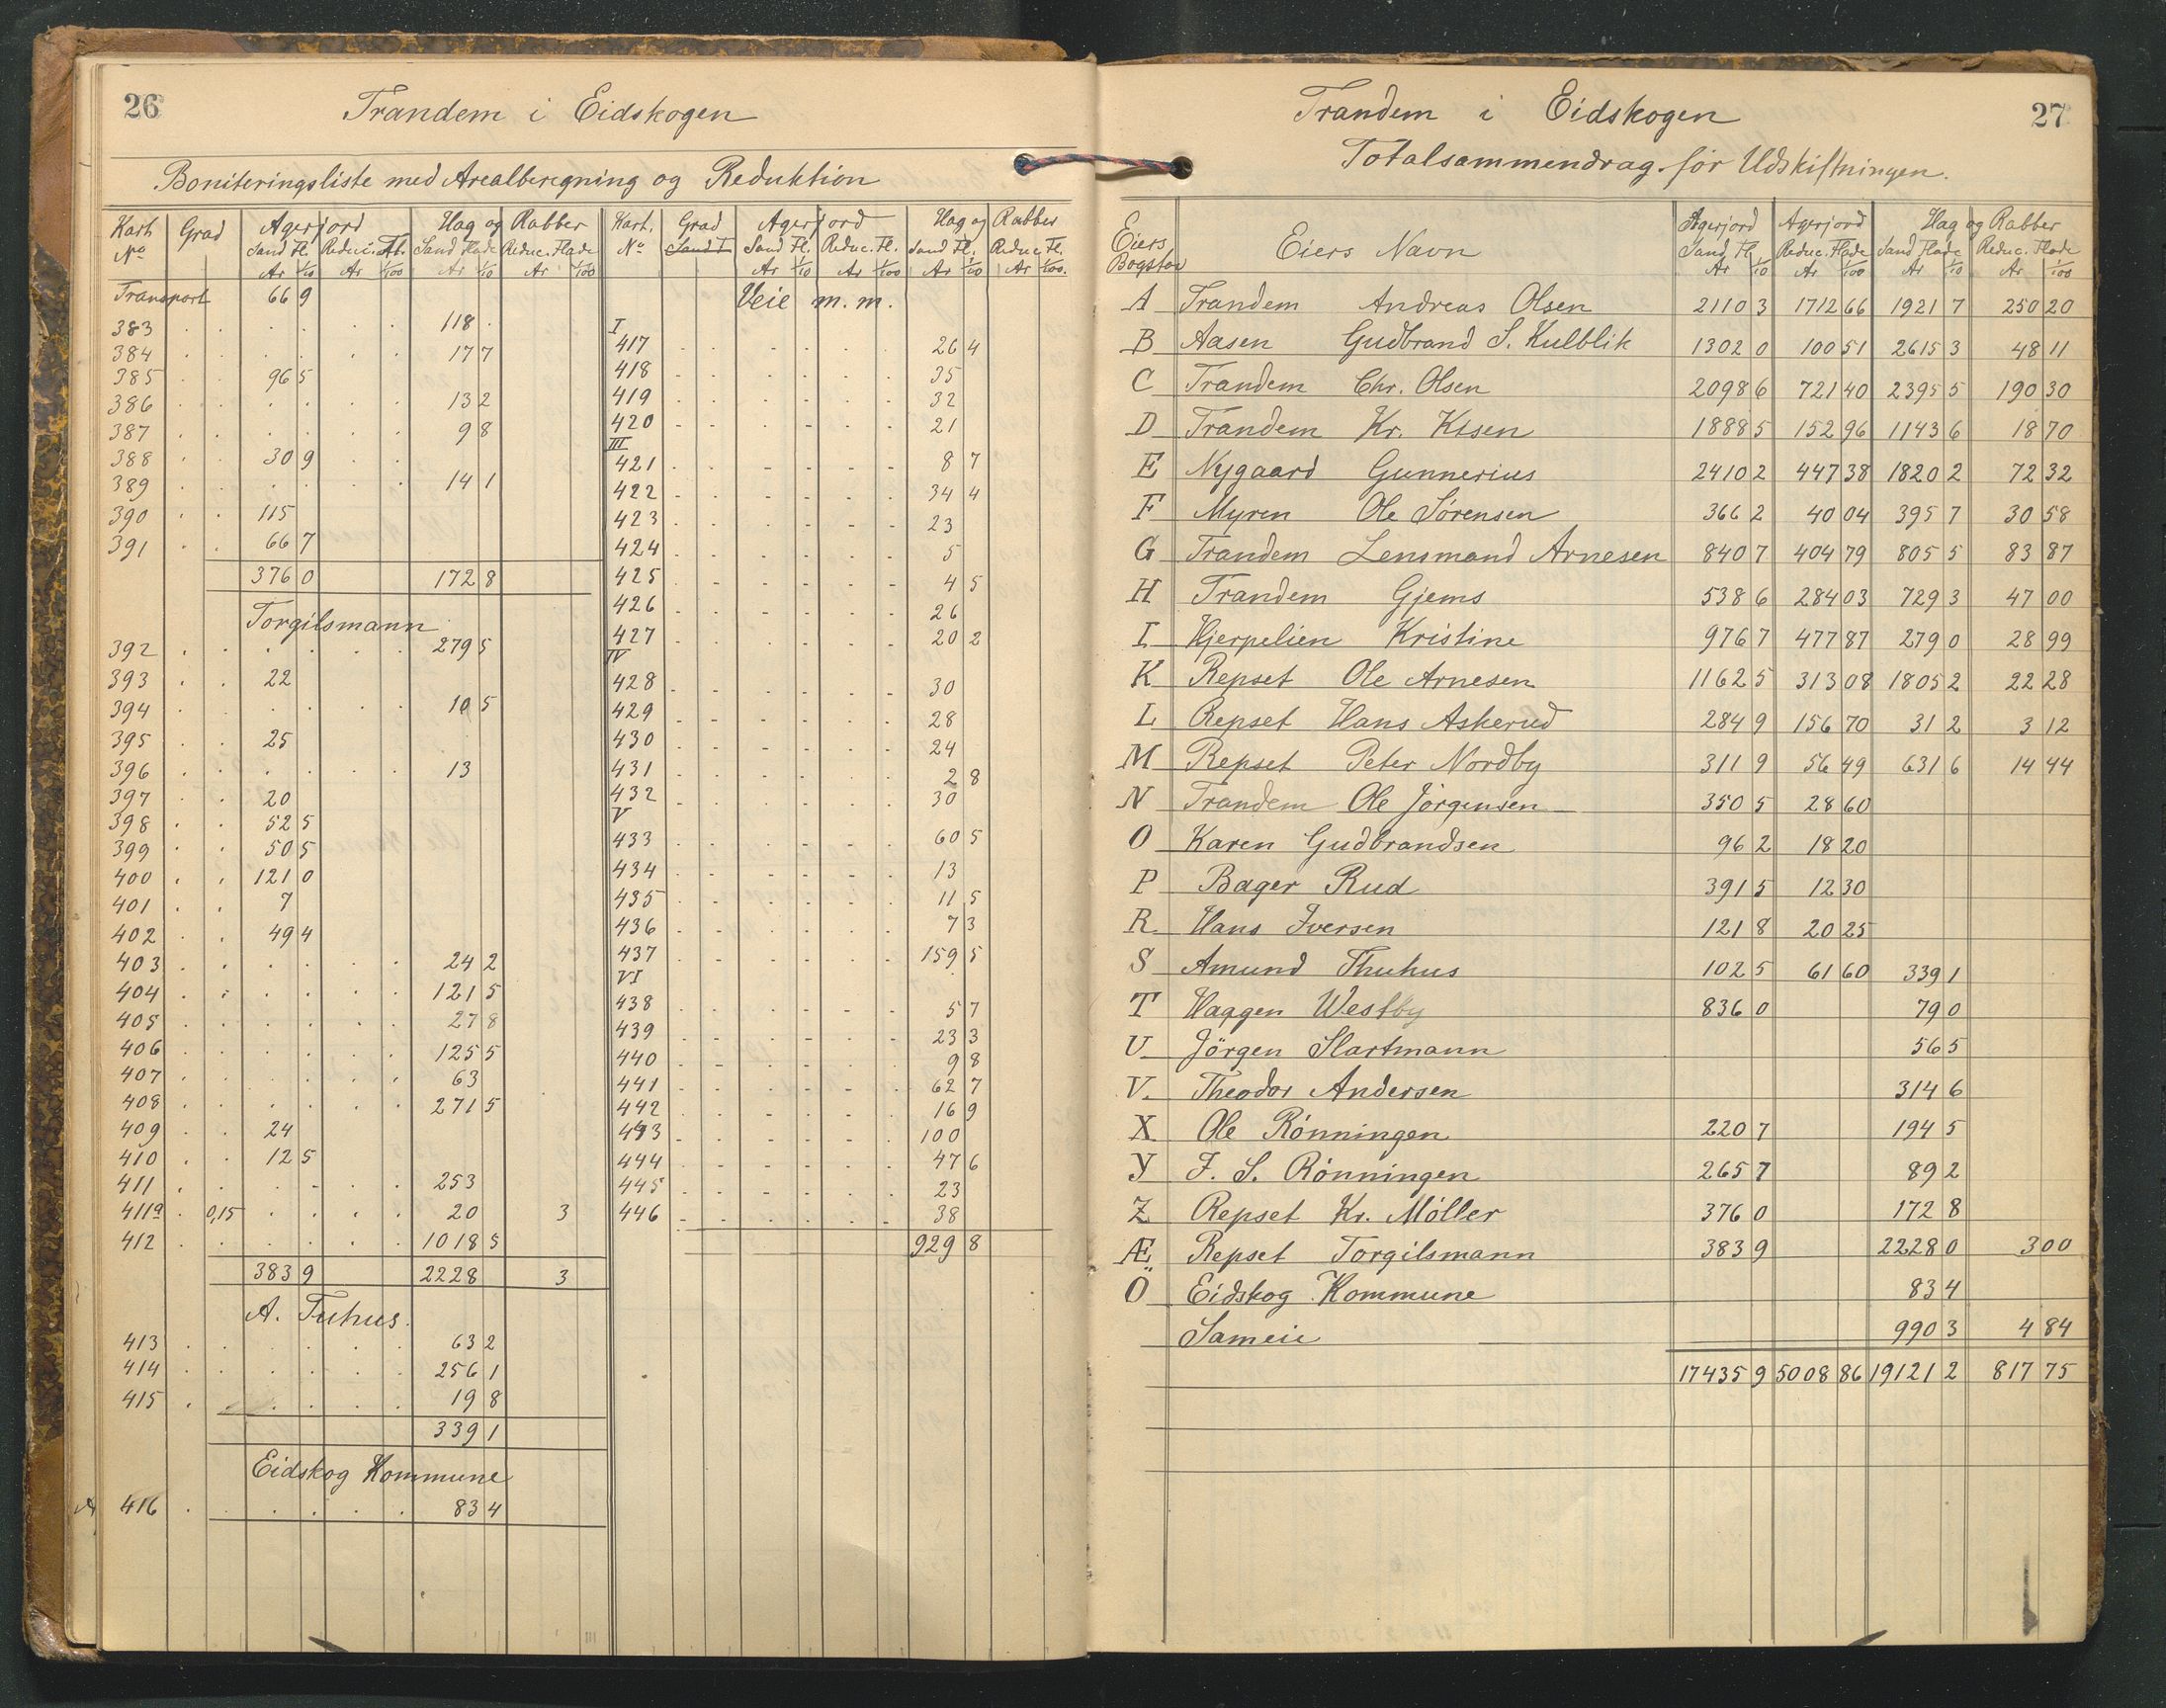 26
Trandem i Eidskogen
Boniteringsliste med Arealberegning og Reduktion
Kart No | Grad | Agerjord Sand Fl. Ar 1/10 | Reduc. Fl. Ar 1/100 | Hag og Rabber Sand Flade Ar 1/10 | Reduc. Flade Ar 1/100
Transport 66 9
383 118
384 17 7
385 96 5
386 13 2
387 9 8
388 30 9
389 14 1
390 115
391 66 7
376 0 172 8
Torgilsmann
392 279 5
393 22
394 10 5
395 25
396 13
397 20
398 52 5
399 50 5
400 121 0
401 7
402 49 4
403 24 2
404 121 5
405 27 8
406 125 5
407 63
408 271 5
409 24
410 12 5
411 253
411a 0,15 20 3
412 1018 5
383 9 2228 3
A. Tuhus.
413 63 2
414 256 1
415 19 8
339 1
Eidskog Kommune
416 83 4
Kart. No | Grad | Agerjord Sand Fl. Ar 1/10 | Reduc. Fl. Ar 1/100 | Hag og Rabber Sand Fl. Ar 1/10 | Reduc. Fl. Ar 1/100.
Veie m. m.
I
417 26 4
418 35
419 32
420 21
III
421 8 7
422 34 4
423 23
424 5
425 4 5
426 26
427 20 2
IV
428 30
429 28
430 24
431 2 8
432 30
V
433 60 5
434 13
435 11 5
436 7 3
437 159 5
VI
438 5 7
439 23 3
440 9 8
441 62 7
442 16 9
443 100
444 47 6
445 23
446 38
929 8
27
Trandem i Eidskogen
Totalsammendrag før Udskiftningen.
Eiers Bogstav | Eiers Navn | Agerjord Sand Fl. Ar 1/10 | Agerjord Reduc. Flade Ar 1/100 | Hag og Rabber Sand Flade Ar 1/10 | Reduc. Flade Ar 1/100
A Trandem Andreas Olsen 2110 3 1712 66 1921 7 250 20
B Aasen Gudbrand S. Kulblik 1302 0 100 51 2615 3 48 11
C Trandem Chr. Olsen 2098 6 721 40 2395 5 190 30
D Trandem Kr. Klsen 1888 5 152 96 1143 6 18 70
E Nygaard Gunnerius 2410 2 447 38 1820 2 72 32
F Myren Ole Sørensen 366 2 40 04 395 7 30 58
G Trandem Lensmand Arnesen 840 7 404 79 805 5 83 87
H Trandem Gjems 538 6 284 03 729 3 47 00
I Hjerpelien Kristine 976 7 477 87 279 0 28 99
K Repset Ole Arnesen 1162 5 313 08 1805 2 22 28
L Repset Hans Askerud 284 9 156 70 31 2 3 12
M Repset Peter Nordby 311 9 56 49 631 6 14 44
N Trandem Ole Jörgensen 350 5 28 60
O Karen Gudbrandsen 96 2 18 20
P Bager Rud 391 5 12 30
R. Hans Iversen 121 8 20 25
S Amund Thuhus 102 5 61 60 339 1
T Haagen Westby 836 0 79 0
U. Jörgen Slartmann 56 5
V. Theodor Andersen 314 6
X Ole Rönningen 220 7 194 5
Y J. S. Rönningen 265 7 89 2
Z Repset Kr. Möller 376 0 172 8
Æ Repset Torgilsmann 383 9 2228 0 3 00
Ö Eidskog Kommune 83 4
Sameie 990 3 4 84
17435 9 5008 86 19121 2 817 75